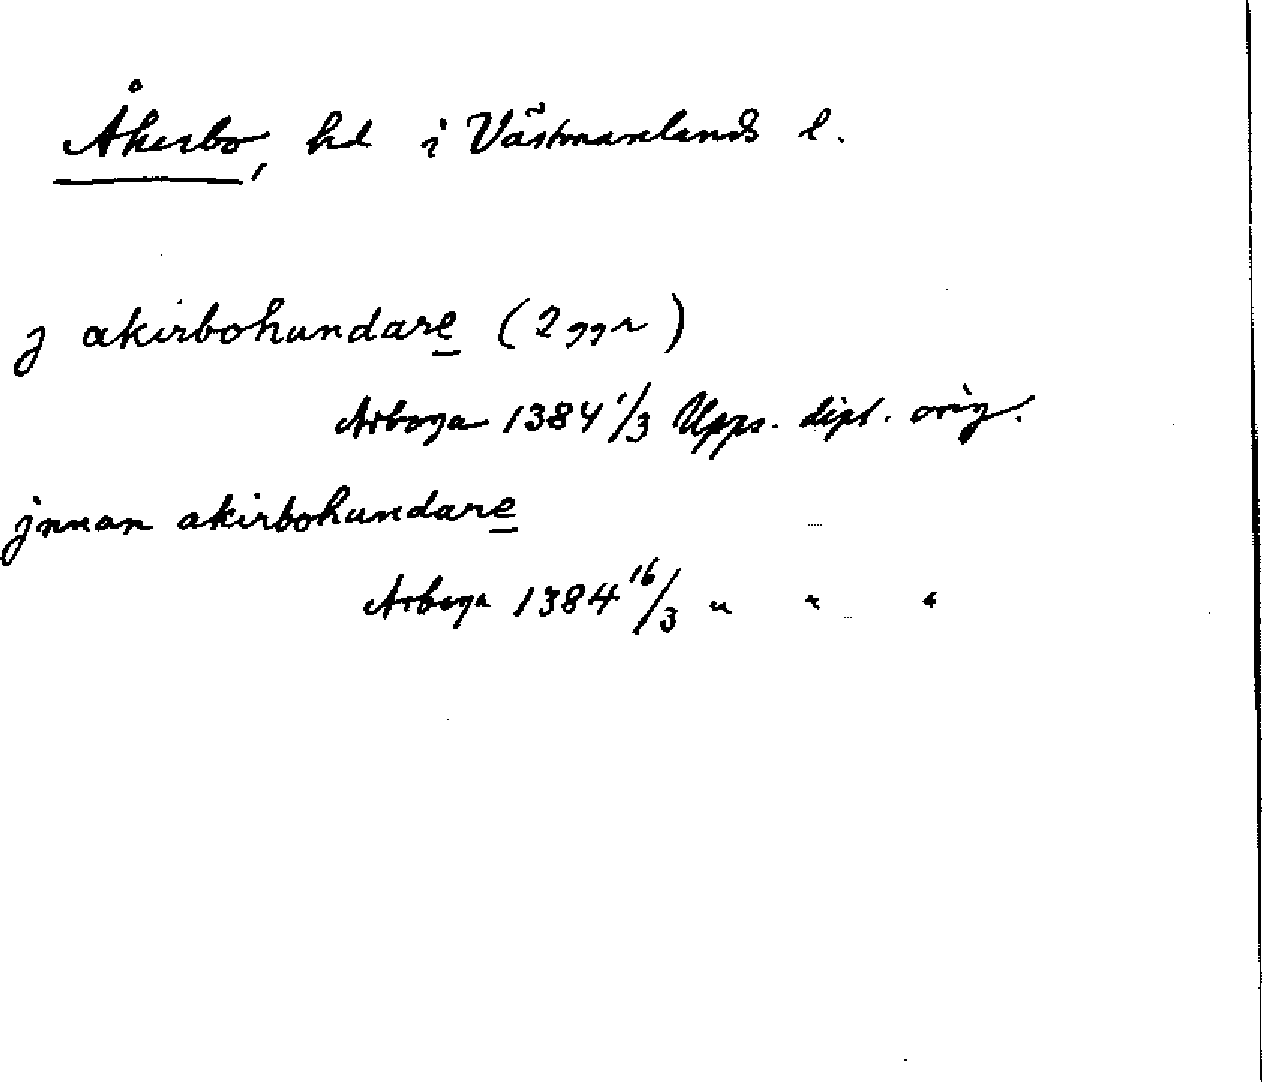 Åkerbo, hd i Västmanlands l.
j akirbohundare (2 ggr)
Arboga 1384 1/3 Upps. dipl. orig.
jnnan akirbohundare
Arboga 1384 16/3 " " "